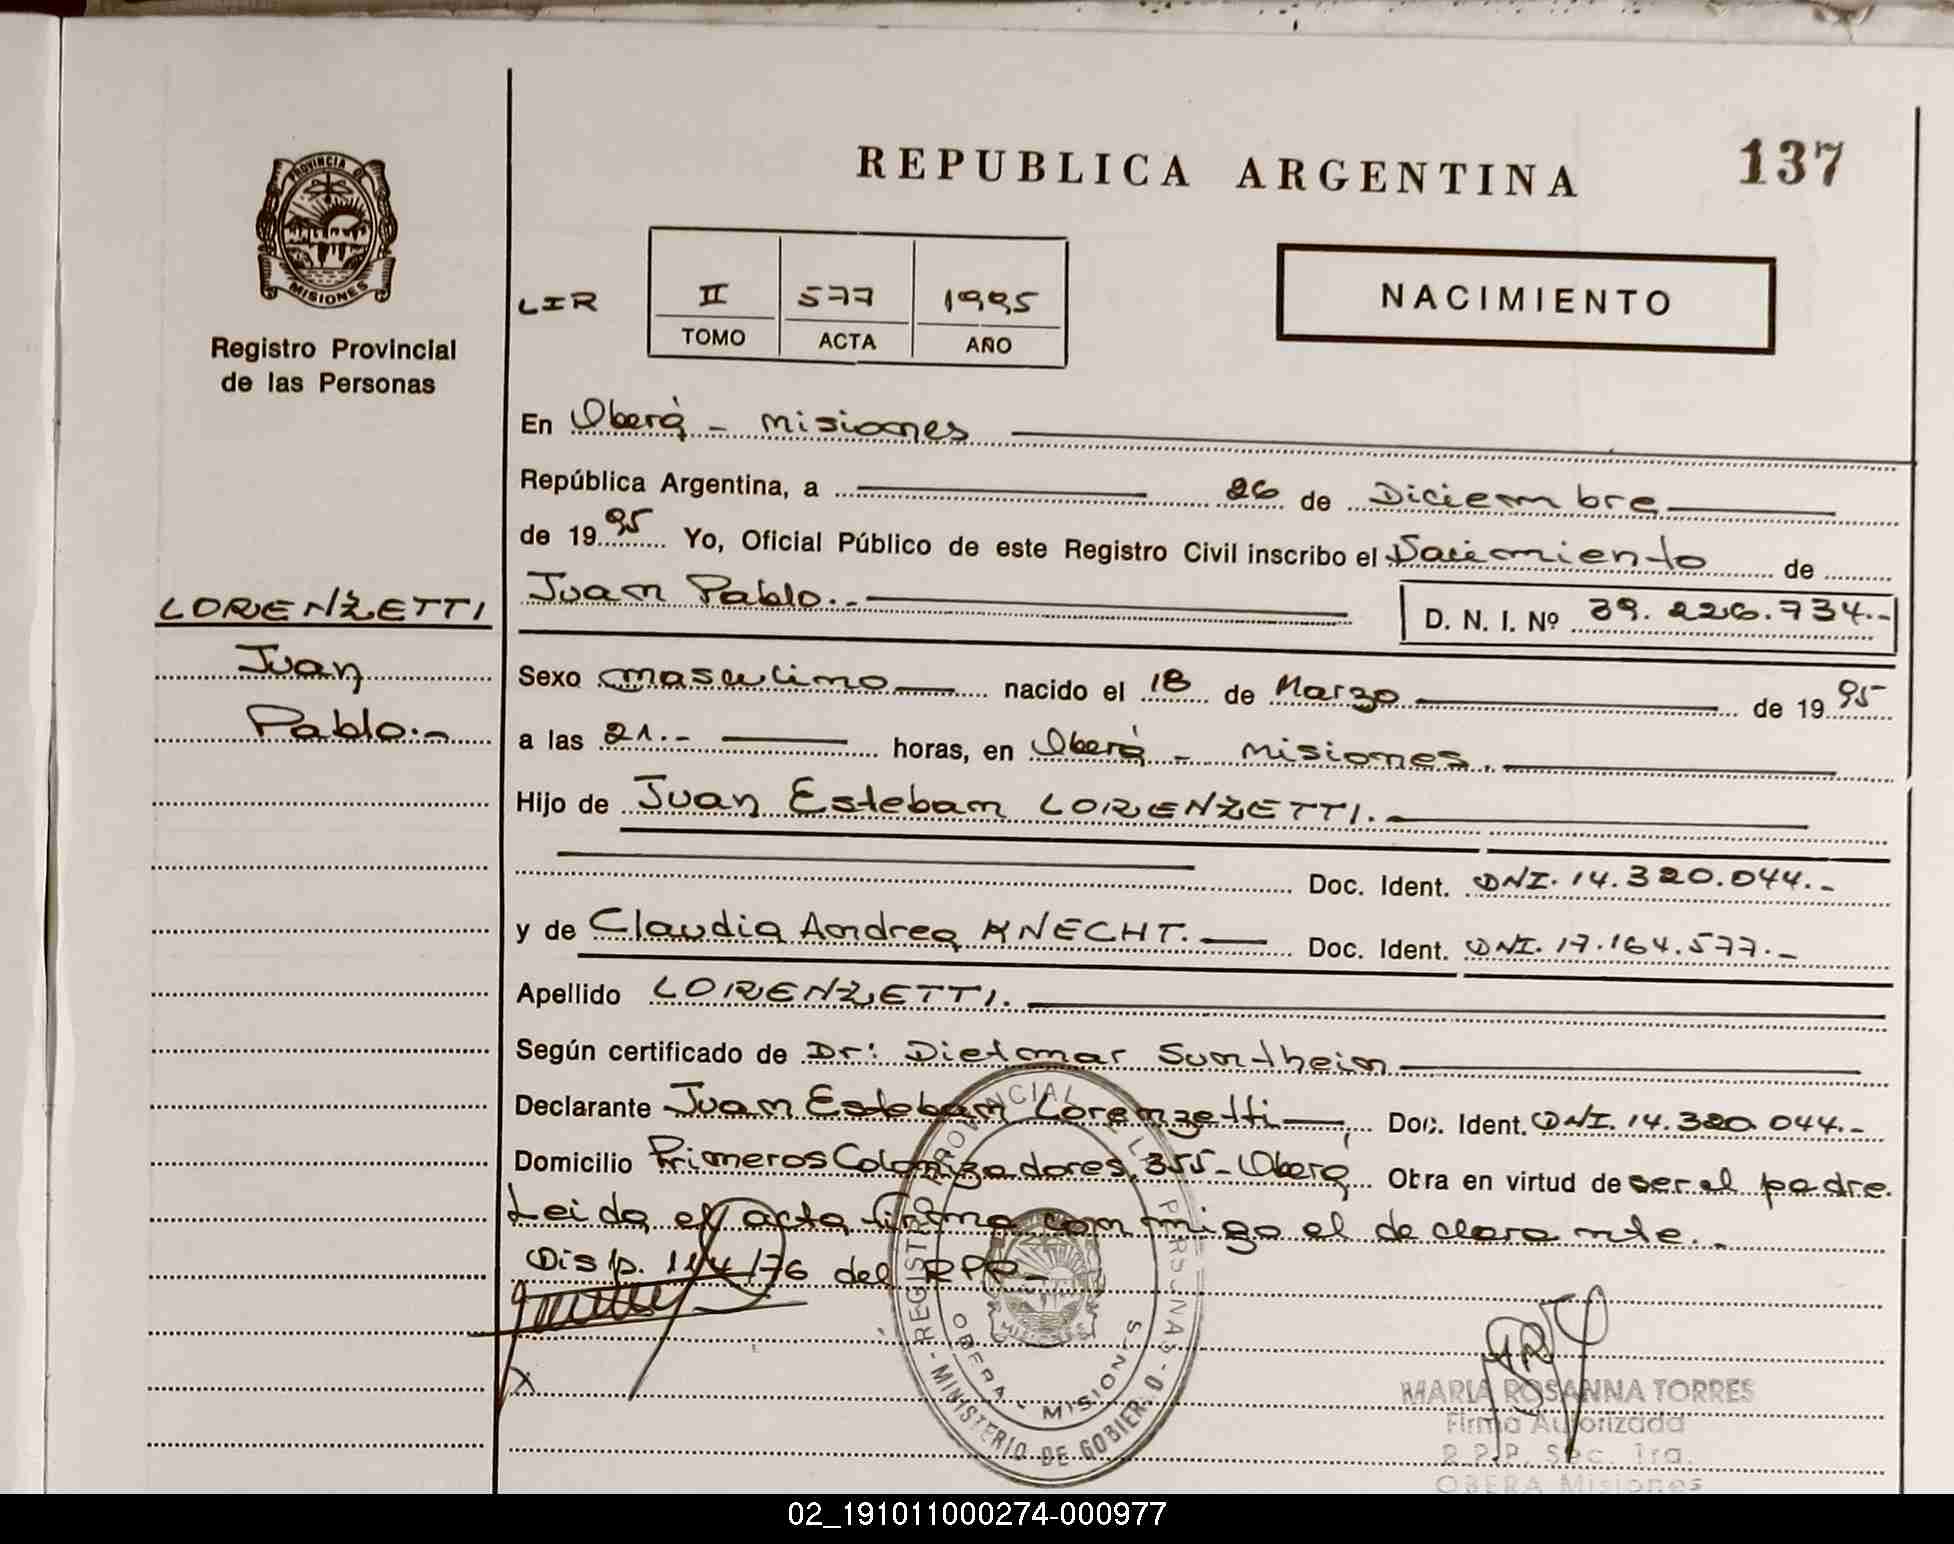 REPUBLICA ARGENTINA
137
PROVINCIA DE
MISIONES
Registro Provincial
de las Personas
LIR
II 577 1995
TOMO ACTA AÑO
NACIMIENTO
En Oberá - Misiones
República Argentina, a 26 de Diciembre
de 1995 Yo, Oficial Público de este Registro Civil inscribo el Nacimiento de
Juan Pablo.-
D. N. I. Nº 39.226.734.-
LORENZETTI
Juan
Pablo.-
Sexo masculino nacido el 18 de Marzo de 1995
a las 21.- horas, en Oberá - Misiones.
Hijo de Juan Esteban LORENZETTI.
Doc. Ident. DNI. 14.320.044.-
y de Claudia Andrea KNECHT. Doc. Ident. DNI. 17.164.577.-
Apellido LORENZETTI.
Según certificado de Dr: Dietmar Suntheim
Declarante Juan Esteban Lorenzetti Doc. Ident. DNI. 14.320.044.-
Domicilio Primeros Colonizadores 355 - Oberá Obra en virtud de ser el padre.
Leida el acta firma conmigo el declarante.-
Disp. 114/76 del RPP.-
REGISTRO PROVINCIAL DE LAS PERSONAS - MINISTERIO DE GOBIERNO -
OBERA - MISIONES
MISIONES
MARIA ROSANNA TORRES
Firma Autorizada
R.P.P. Sec. 1ra.
OBERA Misiones
02_191011000274-000977